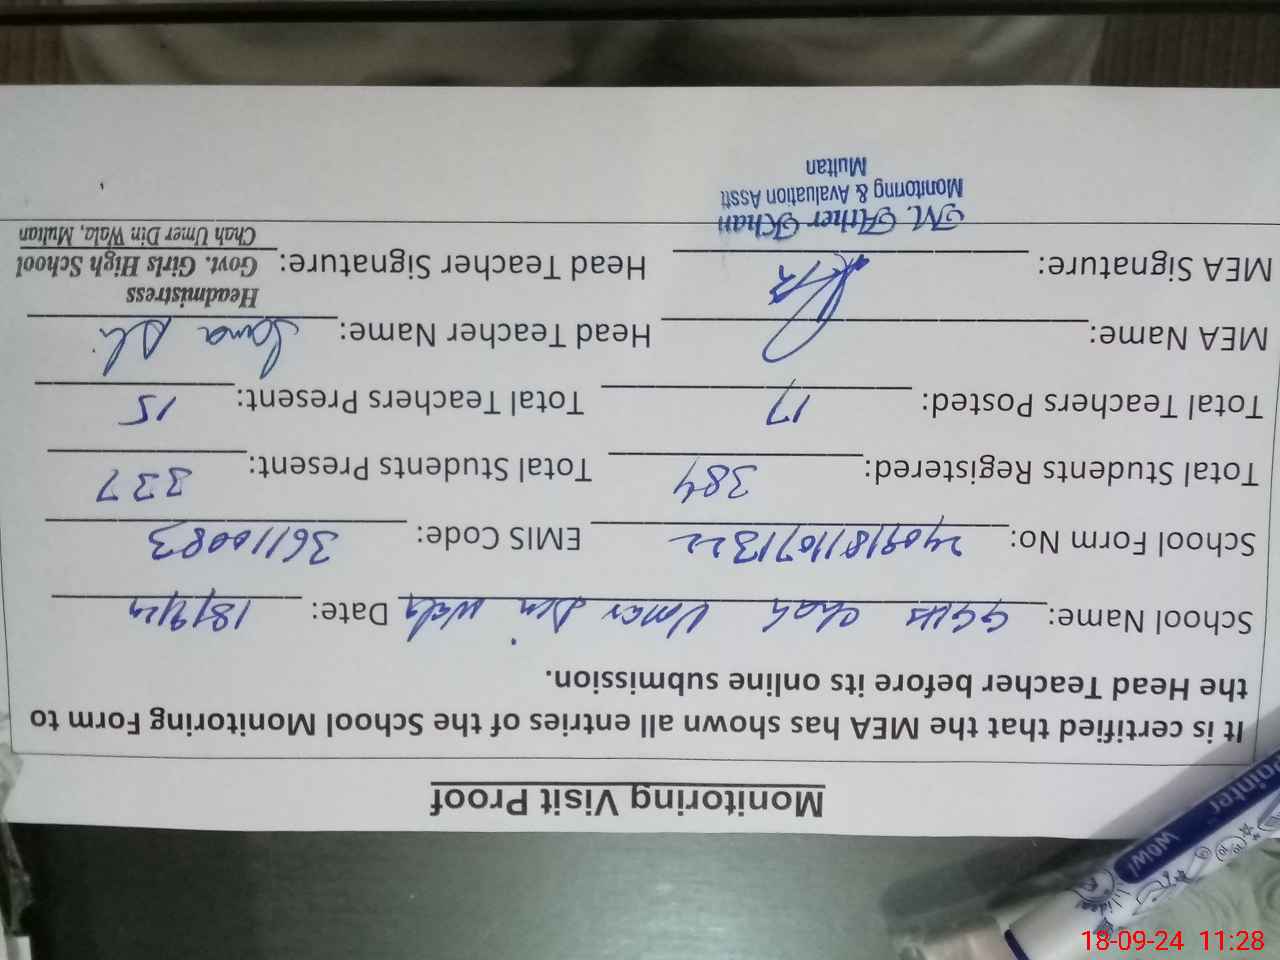 Monitoring Visit Proof
It is certified that the MEA has shown all entries of the School Monitoring Form to
the Head Teacher before its online submission.
School Name: GGHS Chah Umer Din Wala Date: 18/9/24
School Form No: 240918110711322 EMIS Code: 36110083
Total Students Registered: 384 Total Students Present: 337
Total Teachers Posted: 17 Total Teachers Present: 15
MEA Name: Head Teacher Name: Sana
Headmistress
MEA Signature: Head Teacher Signature: Govt. Girls High School
M. Ather Khan Chah Umer Din Wala, Multan
Monitoring & Avaluation Asstt
Multan
Pointer
WOW!
18-09-24 11:28